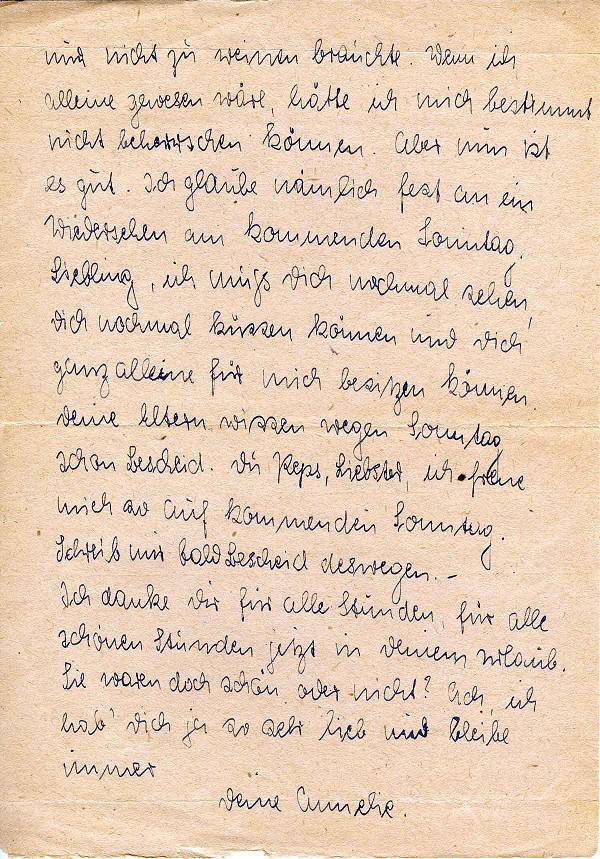 und nicht zu weinen brauchte. Wenn ich
alleine gewesen wäre, hätte ich mich bestimmt
nicht beherrschen können. Aber nun ist
es gut. Ich glaube nämlich fest an ein
Wiedersehen am kommenden Sonntag.
Liebling, ich muß Dich nochmal sehen,
Dich nochmal küssen können und Dich
ganz alleine für mich besitzen können.
Deine Eltern wissen wegen Sonntag
schon Bescheid. Du Peps, Liebster, ich freue
mich so auf kommenden Sonntag.
Schreib mir bald Bescheid deswegen. –
Ich danke Dir für alle Stunden, für alle
schönen Stunden jetzt in Deinem Urlaub.
Sie waren doch schön oder nicht? Ach, ich
hab' Dich ja so sehr lieb und bleibe
immer
Deine Annelie.